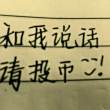 和我说话
请投币!